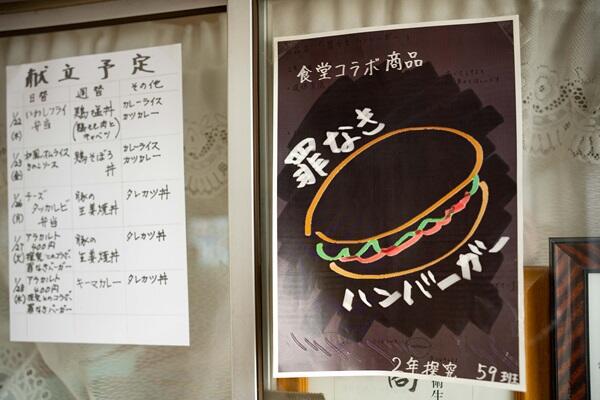 献立予定
日替 週替 その他
1/22(木) いわしフライ弁当 鶏塩丼(鶏もも肉とキャベツ) カレーライス カツカレー
1/23(金) 和風オムライスきのこソース 鶏そぼろ丼 カレーライス カツカレー
1/26(月) チーズタッカルビ弁当 豚の生姜焼丼 タレカツ丼
1/27(火) アラカルト400円 探究とのコラボ、罪なきバーガー 豚の生姜焼丼 タレカツ丼
1/28(水) アラカルト400円 探究とのコラボ、罪なきバーガー キーマカレー タレカツ丼
食堂コラボ商品
罪なき
ハンバーガー
2年探究 59班
衛生